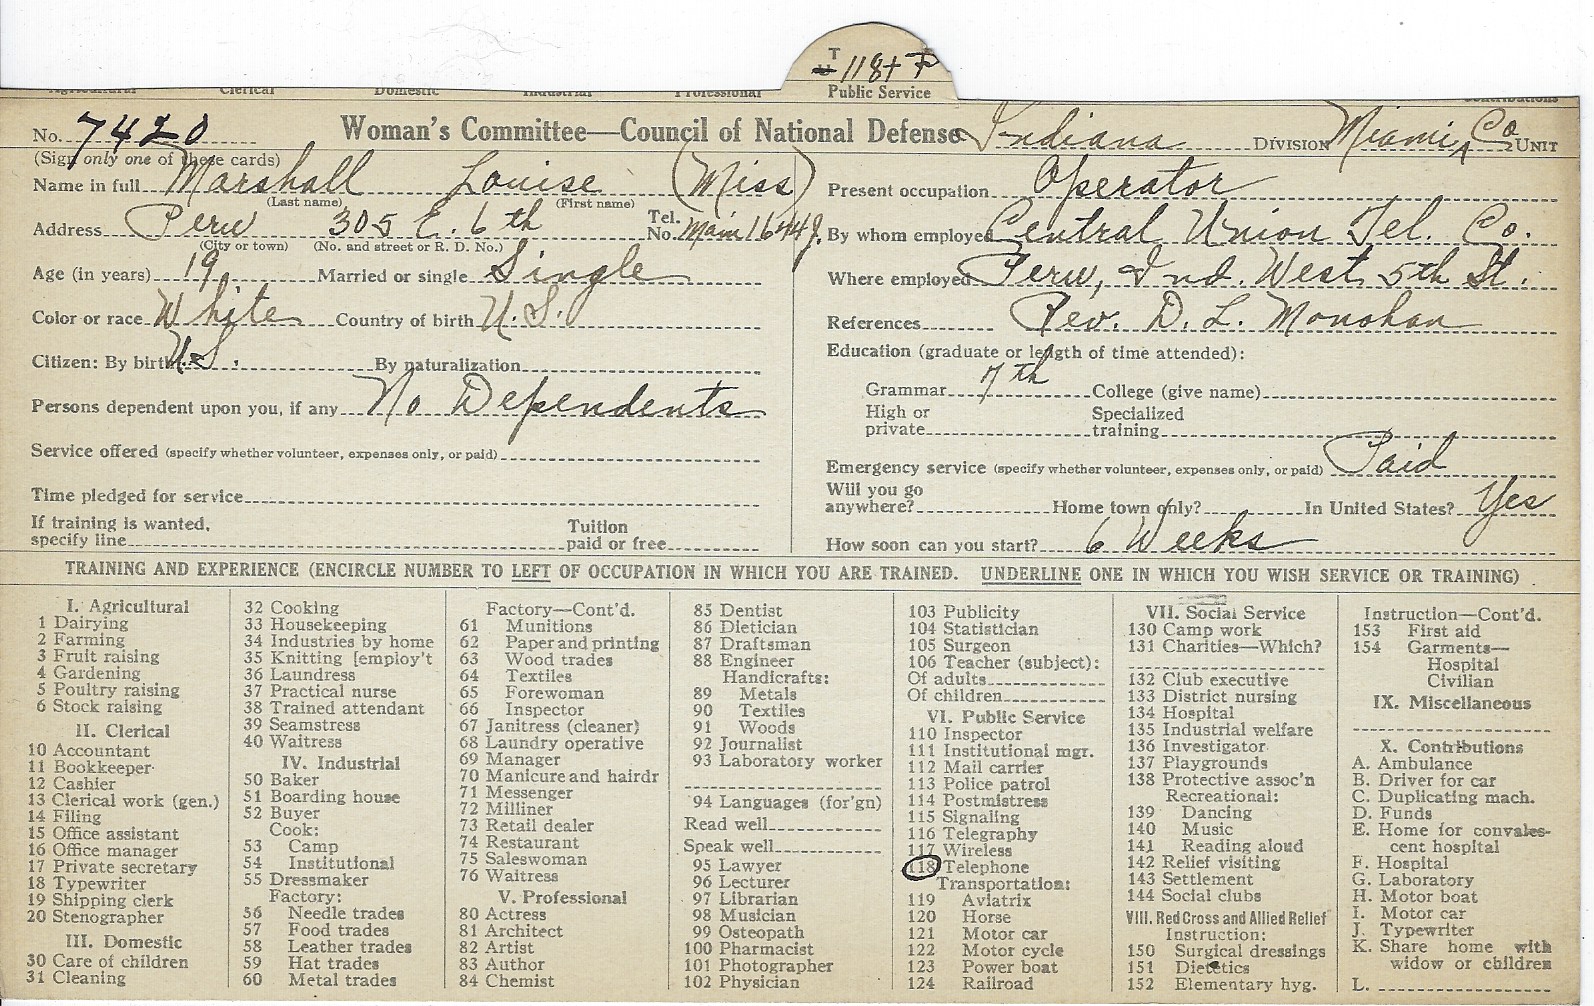 T
118 + P
Public Service
Agricultural Clerical Domestic Industrial Professional Contributions
No. 7420 Woman's Committee—Council of National Defense Indiana DIVISION Miami Co UNIT
(Sign only one of these cards)
Name in full Marshall Louise (Miss)
(Last name) (First name)
Address Peru 305 E. 6th Tel. No. Main 1644 J.
(City or town) (No. and street or R. D. No.)
Age (in years) 19 Married or single Single
Color or race White Country of birth U.S.
Citizen: By birth U.S. By naturalization
Persons dependent upon you, if any No Dependents
Service offered (specify whether volunteer, expenses only, or paid)
Time pledged for service
If training is wanted, specify line Tuition paid or free
Present occupation Operator
By whom employed Central Union Tel. Co.
Where employed Peru, Ind. West 5th St.
References Rev. D. L. Monohan
Education (graduate or length of time attended):
Grammar 7th College (give name)
High or private Specialized training
Emergency service (specify whether volunteer, expenses only, or paid) Paid
Will you go anywhere? Home town only? In United States? Yes
How soon can you start? 6 Weeks
TRAINING AND EXPERIENCE (ENCIRCLE NUMBER TO LEFT OF OCCUPATION IN WHICH YOU ARE TRAINED. UNDERLINE ONE IN WHICH YOU WISH SERVICE OR TRAINING)
I. Agricultural
1 Dairying
2 Farming
3 Fruit raising
4 Gardening
5 Poultry raising
6 Stock raising
II. Clerical
10 Accountant
11 Bookkeeper
12 Cashier
13 Clerical work (gen.)
14 Filing
15 Office assistant
16 Office manager
17 Private secretary
18 Typewriter
19 Shipping clerk
20 Stenographer
III. Domestic
30 Care of children
31 Cleaning
32 Cooking
33 Housekeeping
34 Industries by home
35 Knitting [employ't
36 Laundress
37 Practical nurse
38 Trained attendant
39 Seamstress
40 Waitress
IV. Industrial
50 Baker
51 Boarding house
52 Buyer
Cook:
53 Camp
54 Institutional
55 Dressmaker
Factory:
56 Needle trades
57 Food trades
58 Leather trades
59 Hat trades
60 Metal trades
Factory—Cont'd.
61 Munitions
62 Paper and printing
63 Wood trades
64 Textiles
65 Forewoman
66 Inspector
67 Janitress (cleaner)
68 Laundry operative
69 Manager
70 Manicure and hairdr
71 Messenger
72 Milliner
73 Retail dealer
74 Restaurant
75 Saleswoman
76 Waitress
V. Professional
80 Actress
81 Architect
82 Artist
83 Author
84 Chemist
85 Dentist
86 Dietician
87 Draftsman
88 Engineer
Handicrafts:
89 Metals
90 Textiles
91 Woods
92 Journalist
93 Laboratory worker
94 Languages (for'gn)
Read well
Speak well
95 Lawyer
96 Lecturer
97 Librarian
98 Musician
99 Osteopath
100 Pharmacist
101 Photographer
102 Physician
103 Publicity
104 Statistician
105 Surgeon
106 Teacher (subject):
Of adults
Of children
VI. Public Service
110 Inspector
111 Institutional mgr.
112 Mail carrier
113 Police patrol
114 Postmistress
115 Signaling
116 Telegraphy
117 Wireless
118 Telephone
Transportation:
119 Aviatrix
120 Horse
121 Motor car
122 Motor cycle
123 Power boat
124 Railroad
VII. Social Service
130 Camp work
131 Charities—Which?
132 Club executive
133 District nursing
134 Hospital
135 Industrial welfare
136 Investigator
137 Playgrounds
138 Protective assoc'n
Recreational:
139 Dancing
140 Music
141 Reading aloud
142 Relief visiting
143 Settlement
144 Social clubs
VIII. Red Cross and Allied Relief
Instruction:
150 Surgical dressings
151 Dietetics
152 Elementary hyg.
Instruction—Cont'd.
153 First aid
154 Garments—
Hospital
Civilian
IX. Miscellaneous
X. Contributions
A. Ambulance
B. Driver for car
C. Duplicating mach.
D. Funds
E. Home for convales-
cent hospital
F. Hospital
G. Laboratory
H. Motor boat
I. Motor car
J. Typewriter
K. Share home with
widow or children
L.